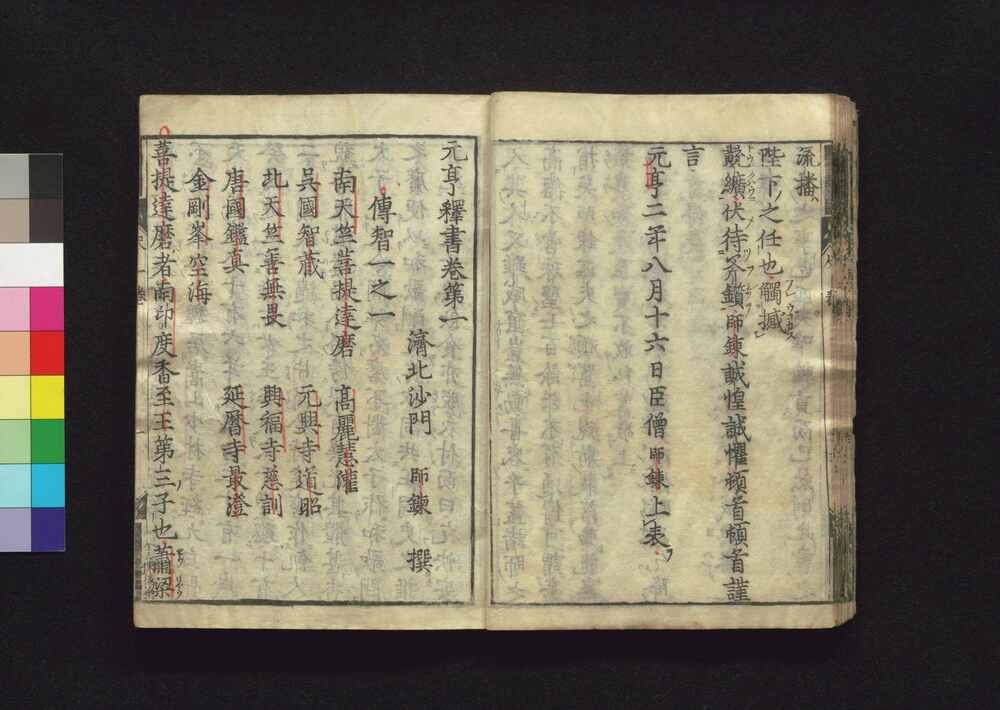 流播
陛下之任也觸撼
黈纊伏待斧鑕師錬誠惶誠懼頓首頓首謹
言
元亨二年八月十六日臣僧師錬上表
元亨釋書卷第一
濟北沙門 師錬 撰
傳智一之一
南天竺菩提達磨 高麗慧灌
吳國智藏 元興寺道昭
北天竺善無畏 興福寺慈訓
唐國鑑真 延曆寺最澄
金剛峯空海
菩提達磨者南印度香至王第三子也蕭梁